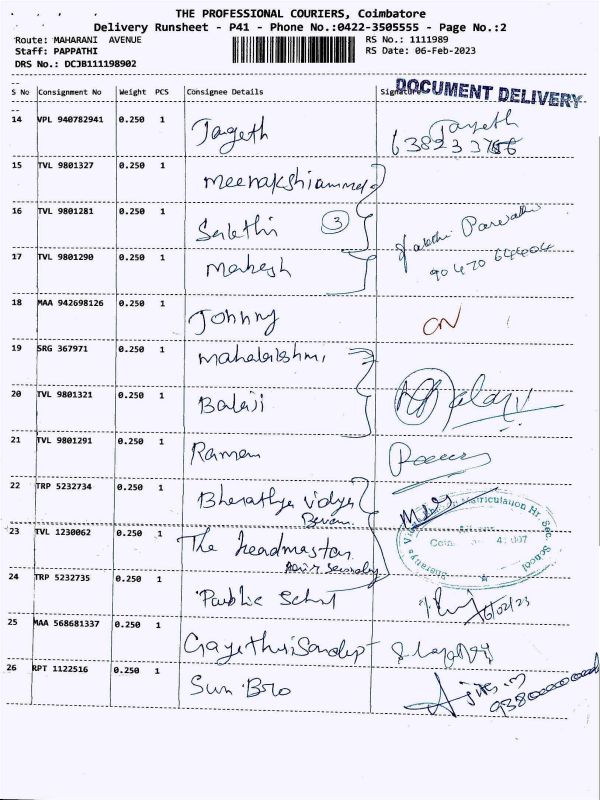 THE PROFESSIONAL COURIERS, Coimbatore
Delivery Runsheet - P41 - Phone No.:0422-3505555 - Page No.:2
Route: MAHARANI AVENUE RS No.: 1111989
Staff: PAPPATHI RS Date: 06-Feb-2023
DRS No.: DCJB111198902
S No Consignment No Weight PCS Consignee Details Signature
DOCUMENT DELIVERY
14 VPL 940782941 0.250 1 Jageth Jayeth
15 TVL 9801327 0.250 1 meenakshiammal
16 TVL 9801281 0.250 1 Salethi 3
17 TVL 9801290 0.250 1 Mahesh 90470 64404
18 MAA 942698126 0.250 1 Johnny
19 SRG 367971 0.250 1 mahalakshmi
20 TVL 9801321 0.250 1 Balaji Balaji
21 TVL 9801291 0.250 1 Raman
22 TRP 5232734 0.250 1 Bharathya Vidya
23 TVL 1230062 0.250 1 The headmaster
Matriculation Hr. Sec. School
24 TRP 5232735 0.250 1 Public School
25 MAA 568681337 0.250 1 Gayethri
26 RPT 1122516 0.250 1 Sun Bro